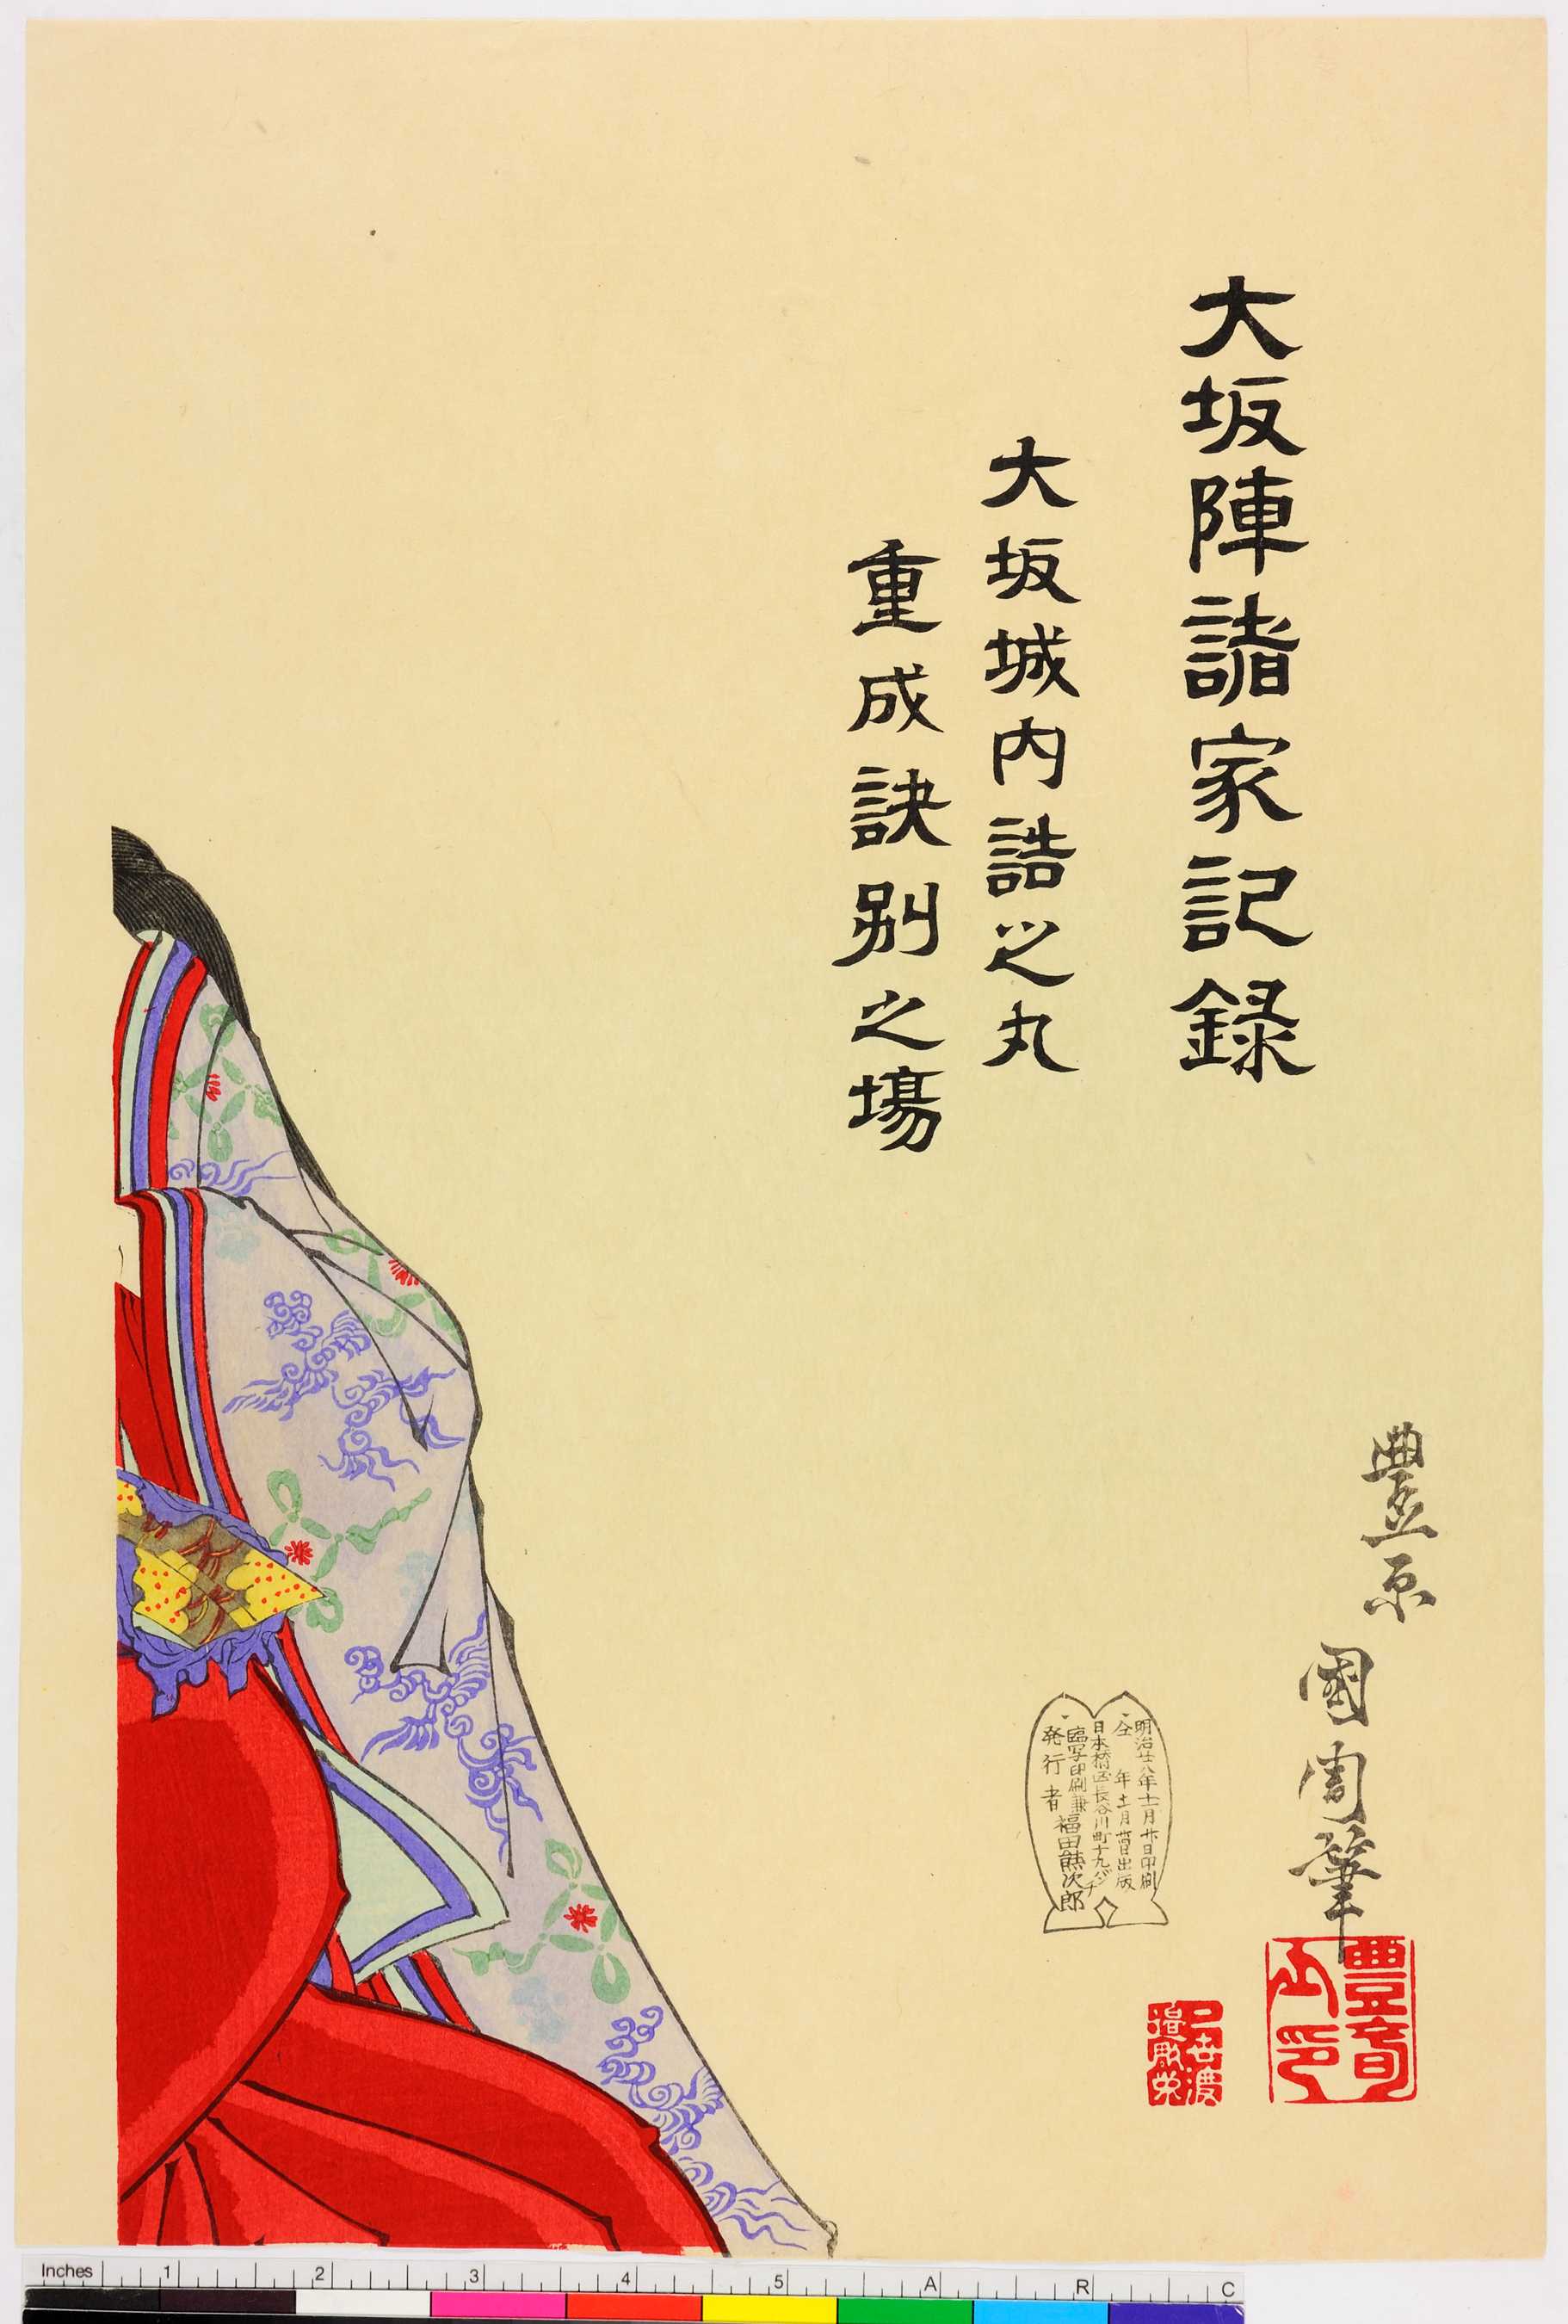 大坂陣諸家記録
大坂城内誥之丸
重成訣別之場
豊原
國周筆
明治廿八年十一月廿日印刷
仝 年十一月廿四日出版
日本橋区長谷川町十九バンチ
臨写印刷兼
発行者 福田熊次郎
Inches 1 2 3 4 5 A R C